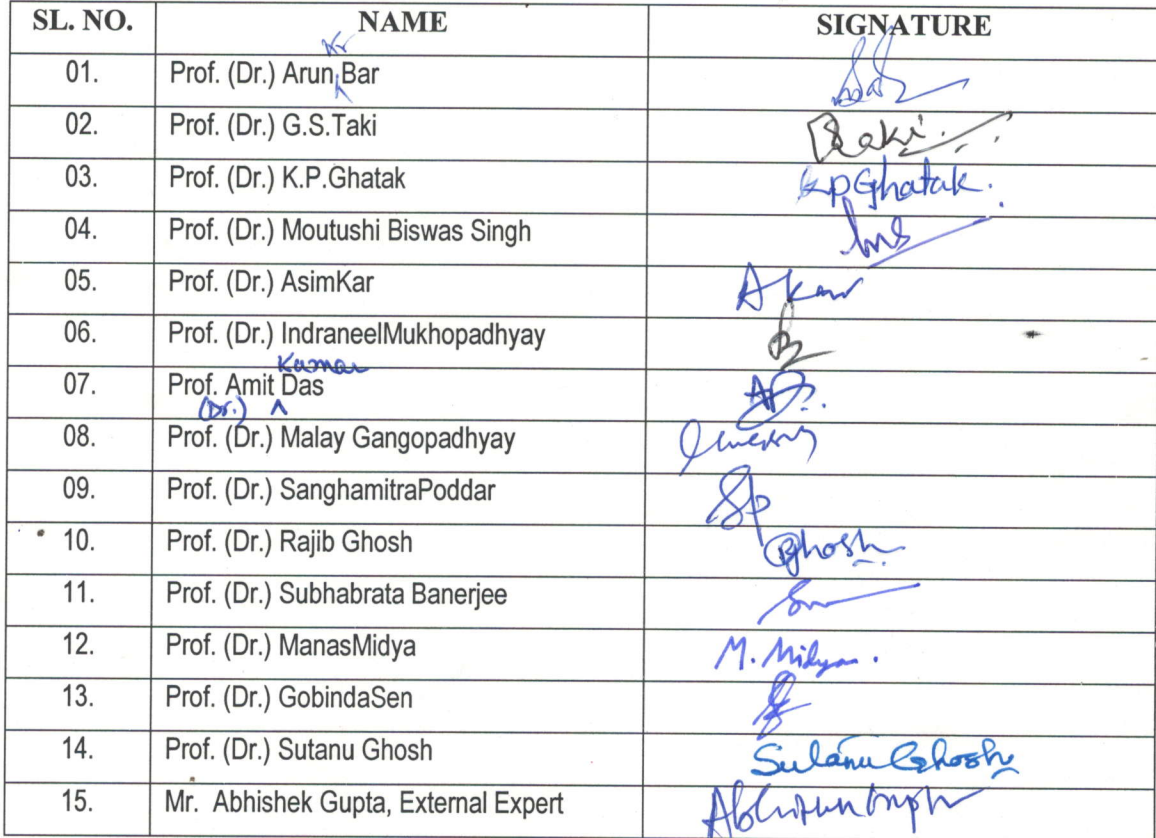 SL. NO. NAME SIGNATURE
Kr
01. Prof. (Dr.) Arun Bar
02. Prof. (Dr.) G.S.Taki Taki.
03. Prof. (Dr.) K.P.Ghatak KPGhatak.
04. Prof. (Dr.) Moutushi Biswas Singh
05. Prof. (Dr.) AsimKar AKar
06. Prof. (Dr.) IndraneelMukhopadhyay
Kumar
07. Prof. Amit Das
(Dr.)
08. Prof. (Dr.) Malay Gangopadhyay
09. Prof. (Dr.) SanghamitraPoddar SP
10. Prof. (Dr.) Rajib Ghosh RGhosh
11. Prof. (Dr.) Subhabrata Banerjee
12. Prof. (Dr.) ManasMidya M. Midya.
13. Prof. (Dr.) GobindaSen
14. Prof. (Dr.) Sutanu Ghosh Sutanu Ghosh
15. Mr. Abhishek Gupta, External Expert